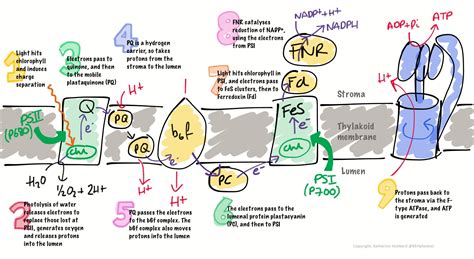 1
Light hits
chlorophyll
and induces
charge
separation
3
Electrons pass to
quinone, and then
to the mobile
plastaquinone (PQ)
4
PQ is a hydrogen
carrier, so takes
protons from the
stroma to the lumen
8
FNR catalyses
reduction of NADP+,
using the electrons
from PSI
7
Light hits chlorophyll in
PSI, and electrons pass
to FeS clusters, then to
Ferredoxin (Fd)
NADP+ + H+
NADPH
FNR
Fd
ADP+Pi
ATP
H+
H+
Stroma
Thylakoid
membrane
Lumen
PSII
(P680)
Q
e-
Chl
PQ
PQ
b6f
e-
PC
e-
FeS
e-
Chl
PSI
(P700)
H2O
1/2O2 + 2H+
H+
H+
2
Photolysis of water
releases electrons to
replace those lost at
PSII, generates oxygen
and releases protons
into the lumen
5
PQ passes the electrons
to the b6f complex. The
b6f complex also moves
protons into the lumen
6
The electrons pass to the
lumenal protein plastacyanin
(PC), and then to PSI
9
Protons pass back to
the stroma via the F-
type ATPase, and ATP
is generated